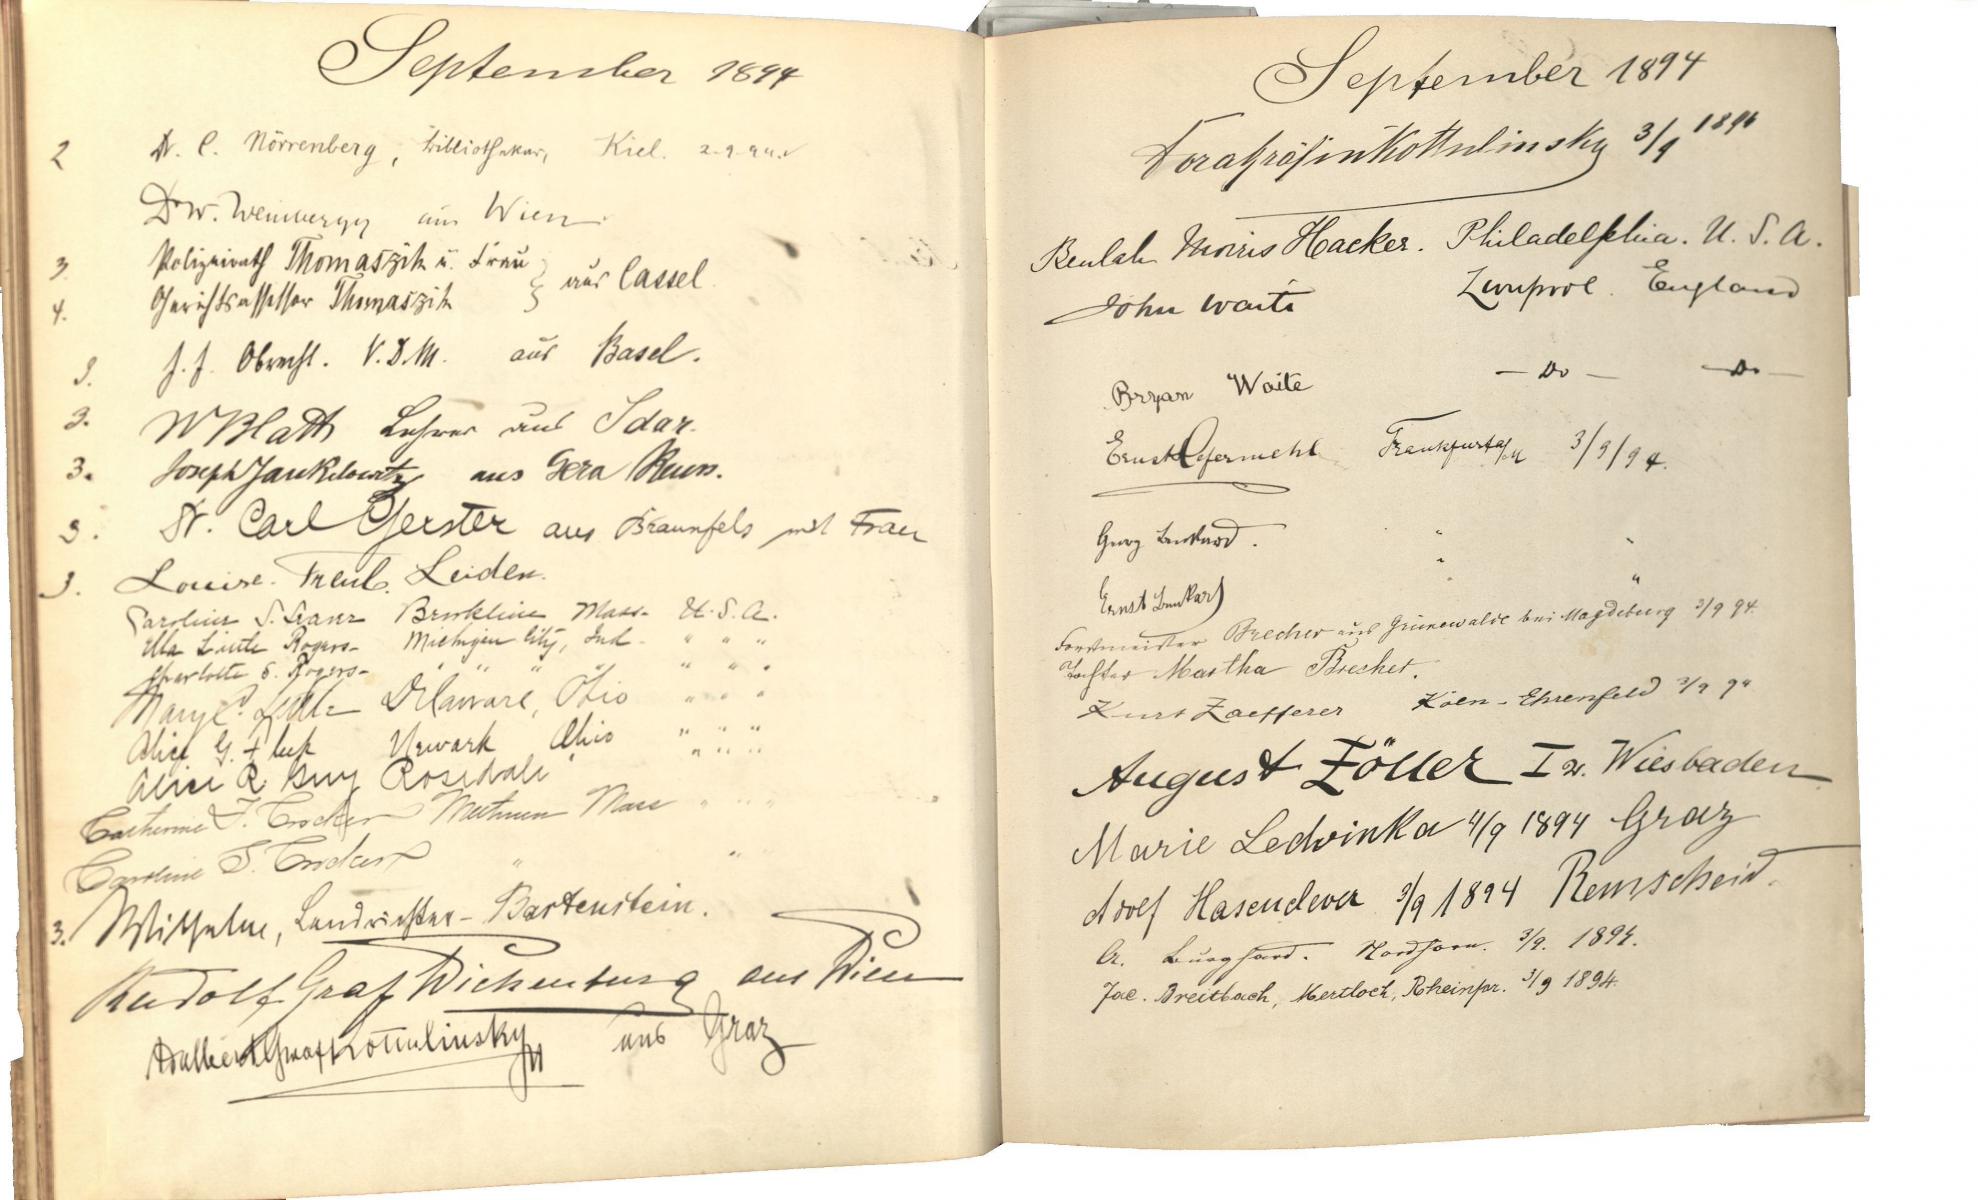 September 1894
2 Dr. C. Nörrenberg, Bibliothekar, Kiel. 2.9.94.
Dr W. aus Wien.
3. Polizeirath Thomaszik u. Frau
4. Gerichtsassessor Thomaszik } aus Cassel.
3. J. J. Obrecht. V.D.M. aus Basel.
3. W Blatt Lehrer aus Idar.
3. Joseph Jankelowitz aus Gera Reuss.
3. Dr. Carl Gerster aus Braunfels mit Frau
3. Louise Treub. Leiden.
Caroline S. Brookline Mass. U.S.A.
Rogers Michigan City, Ind. " " "
Charlotte S. Rogers " " " " " "
Mary Delaware, Ohio " " "
Alice G. Newark Ohio " " "
Alice R. Guy Rosedale
Catherine T. Crocker Methuen Mass " " "
Caroline T. Crocker " "
3. Wilhelm, Landrichter - Bartenstein.
Rudolf Graf Wickenburg aus Wien
Adalbert Graf Kottulinsky aus Graz
September 1894
Dora Gräfin Kottulinsky 3/9 1894
Beulah Morris Hacker. Philadelphia. U.S.A.
John Waite Liverpool. England
Bryan Waite — Do — — Do —
Ernst Frankfurt a/M 3/9/94.
Georg " "
Ernst " "
Forstmeister Brecher aus Grünewalde bei Magdeburg 3/9 94.
Tochter Martha Brecher.
Kurt Zaefferer Köln-Ehrenfeld 3/9 94
August Zöller I r. Wiesbaden
Marie Ledvinka 4/9 1894 Graz
Adolf Hasenclever 3/9 1894 Remscheid.
A. Burghard. Nordhorn. 3/9. 1894.
Jac. Breitbach, Mertloch, Rheinpr. 3/9 1894.